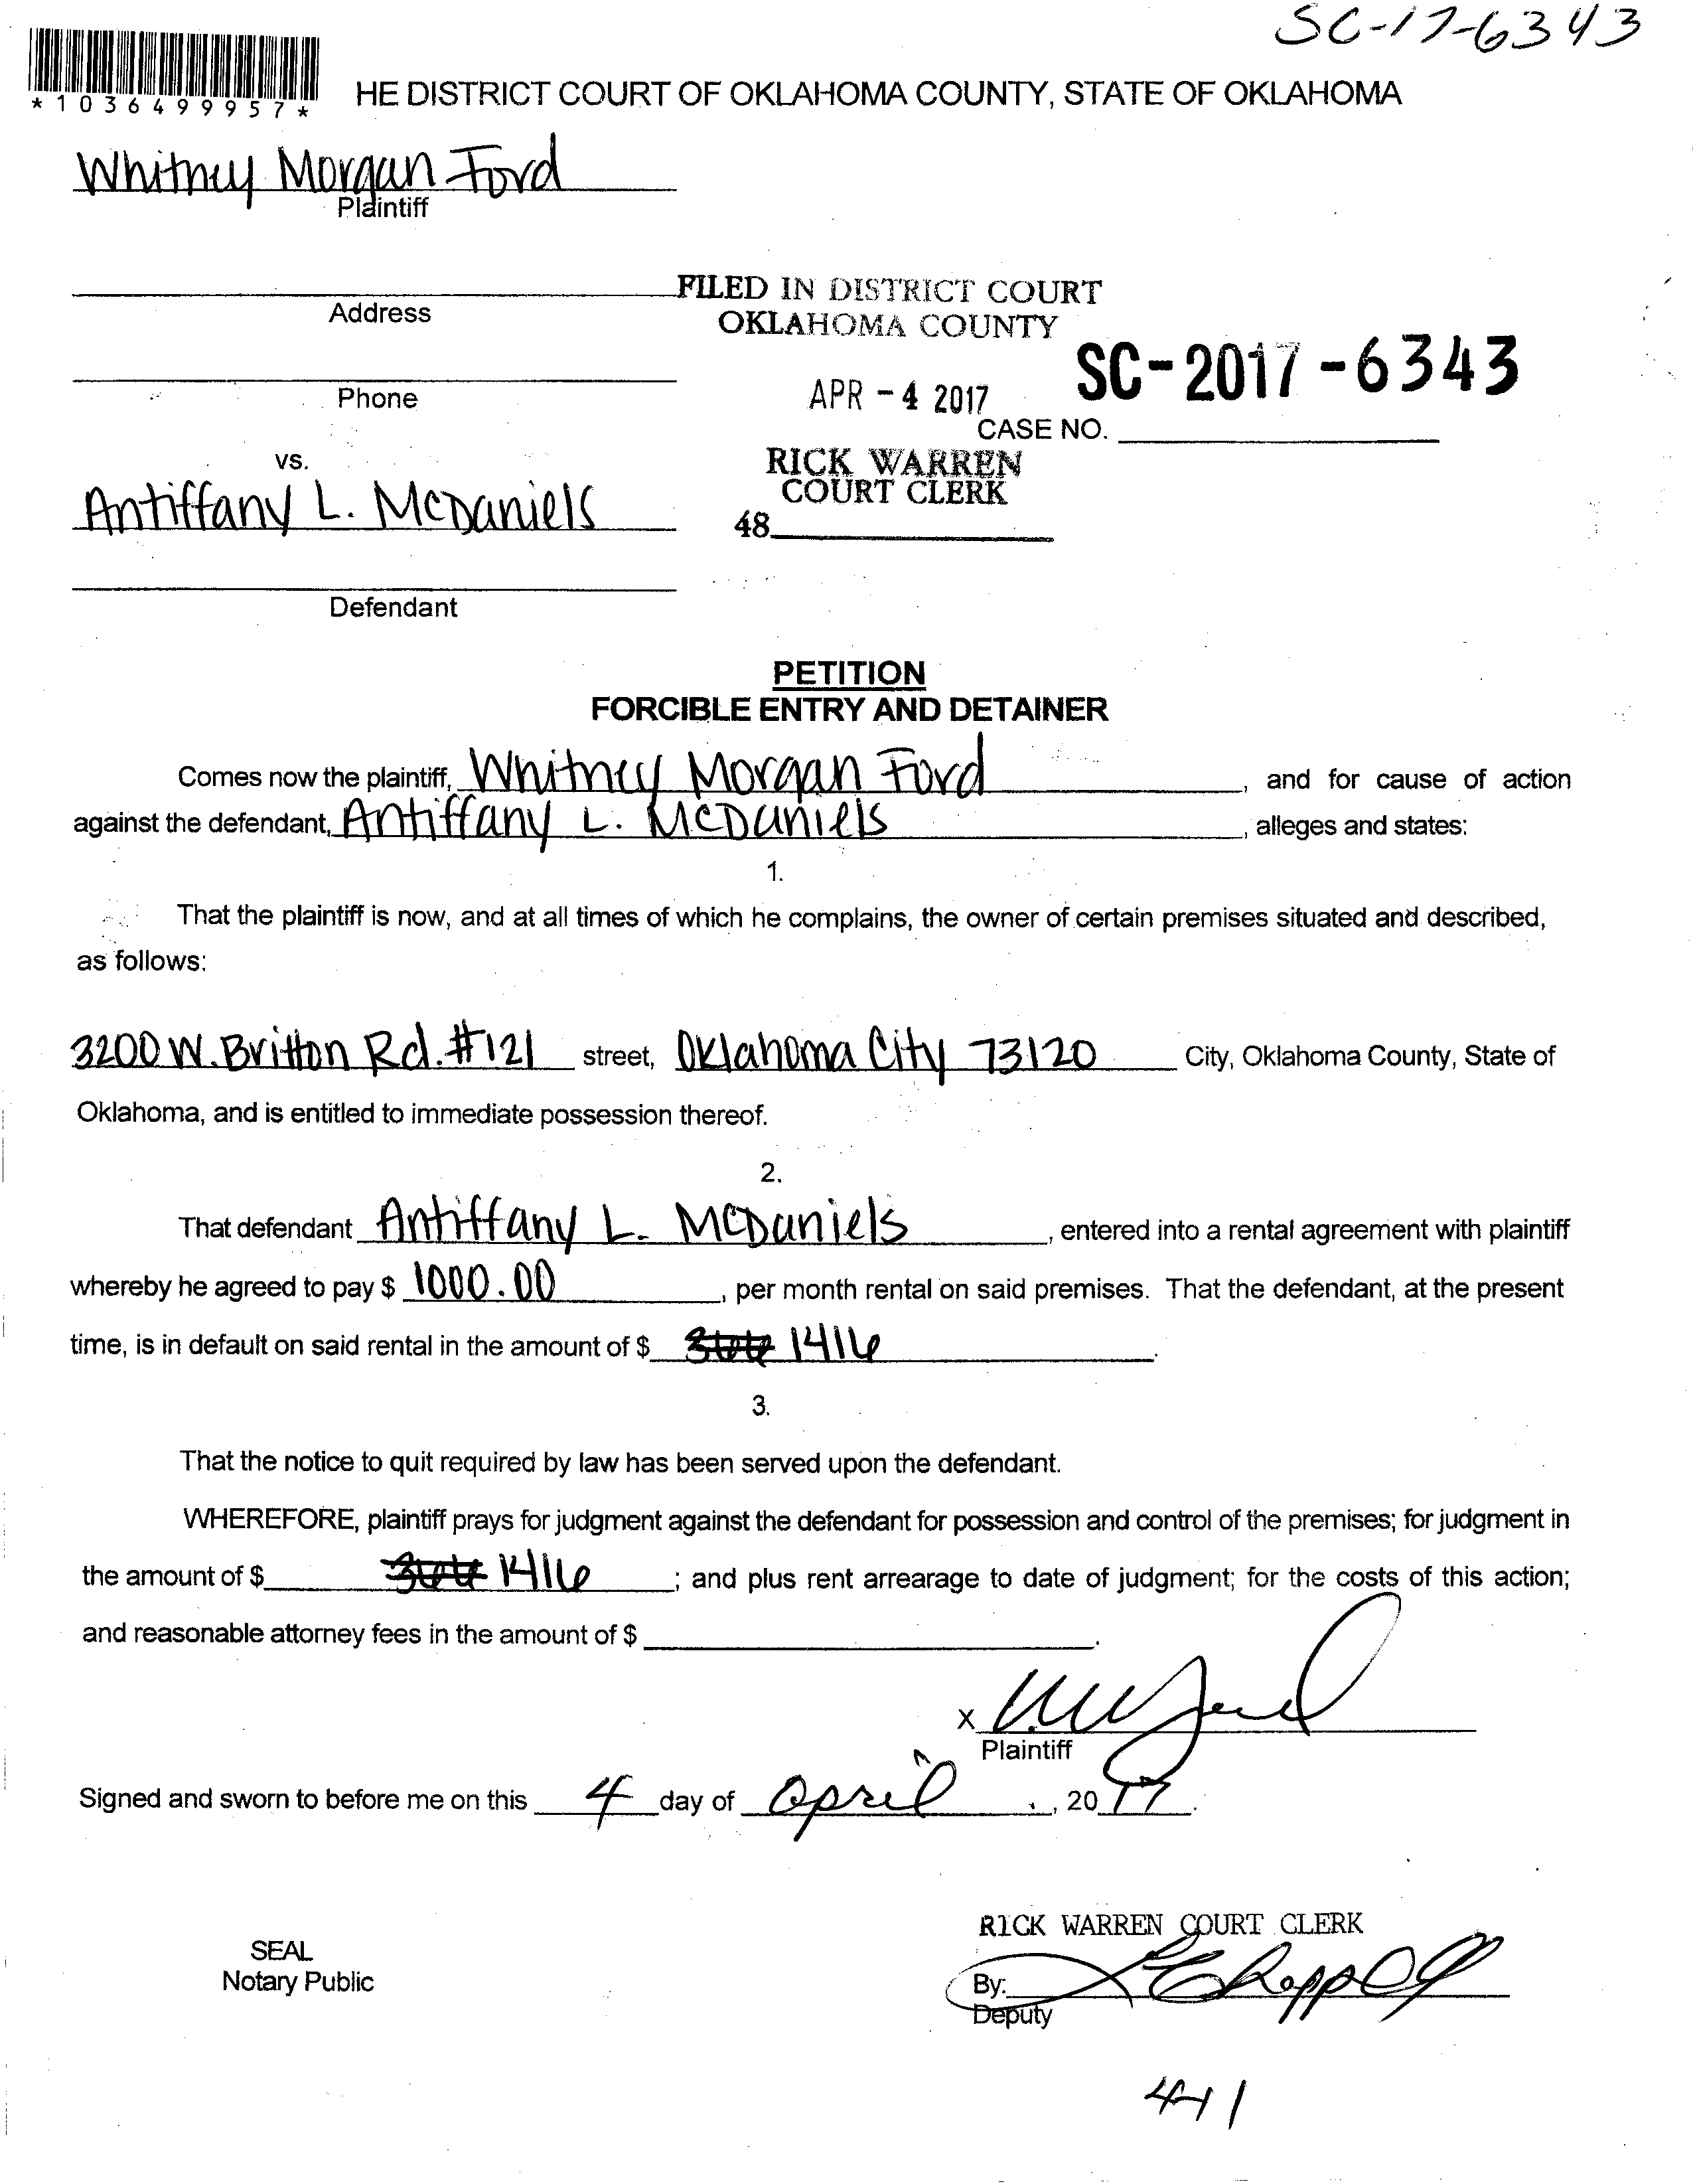 SC-17-6343
*1036499957*
HE DISTRICT COURT OF OKLAHOMA COUNTY, STATE OF OKLAHOMA
Whitney Morgan Ford
Plaintiff
FILED IN DISTRICT COURT
Address
OKLAHOMA COUNTY
SC-2017-6343
APR -4 2017
Phone
CASE NO.
vs.
RICK WARREN
COURT CLERK
Antiffany L. McDaniels
48
Defendant
PETITION
FORCIBLE ENTRY AND DETAINER
Comes now the plaintiff, Whitney Morgan Ford, and for cause of action
against the defendant, Antiffany L. McDaniels, alleges and states:
1.
That the plaintiff is now, and at all times of which he complains, the owner of certain premises situated and described,
as follows:
3200 W. Britton Rd. #121 street, Oklahoma City 73120 City, Oklahoma County, State of
Oklahoma, and is entitled to immediate possession thereof.
2.
That defendant Antiffany L. McDaniels, entered into a rental agreement with plaintiff
whereby he agreed to pay $ 1000.00, per month rental on said premises. That the defendant, at the present
time, is in default on said rental in the amount of $ 1416.
3.
That the notice to quit required by law has been served upon the defendant.
WHEREFORE, plaintiff prays for judgment against the defendant for possession and control of the premises; for judgment in
the amount of $ 1416; and plus rent arrearage to date of judgment; for the costs of this action;
and reasonable attorney fees in the amount of $ .
X
Plaintiff
Signed and sworn to before me on this 4 day of April, 2017.
RICK WARREN COURT CLERK
SEAL
Notary Public
By:
Deputy